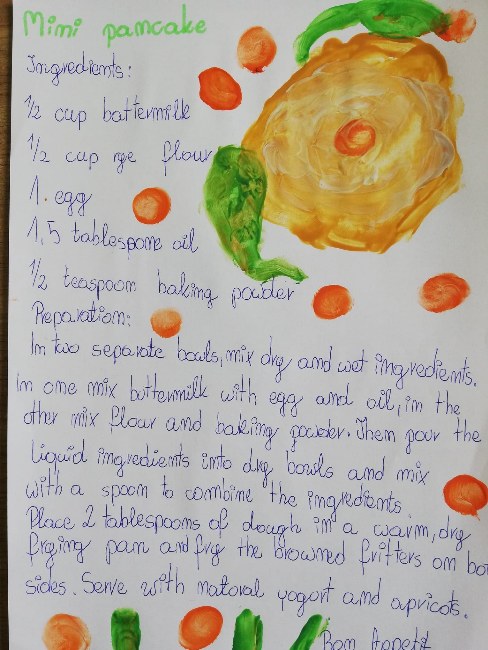 Mimi pamcake
Ingredients:
1/2 cup battermilk
1/2 cup rye flour
1. egg
1,5 tablespone oil
1/2 teaspoom baking powder
Preparation:
Im two separate bowls, mix dry and wet ingredients.
Im one mix buttermilk with egg and oil, im the
other mix flour and baking powder. Them pour the
liquid ingredients into dry bowls and mix
with a spoon to combime the imgredients.
Place 2 tablespoms of dough im a warm, dry
frying pan and fry the browned fritters on bo
sides. Serve with natoral yogort and apricots.
Bom Appetit